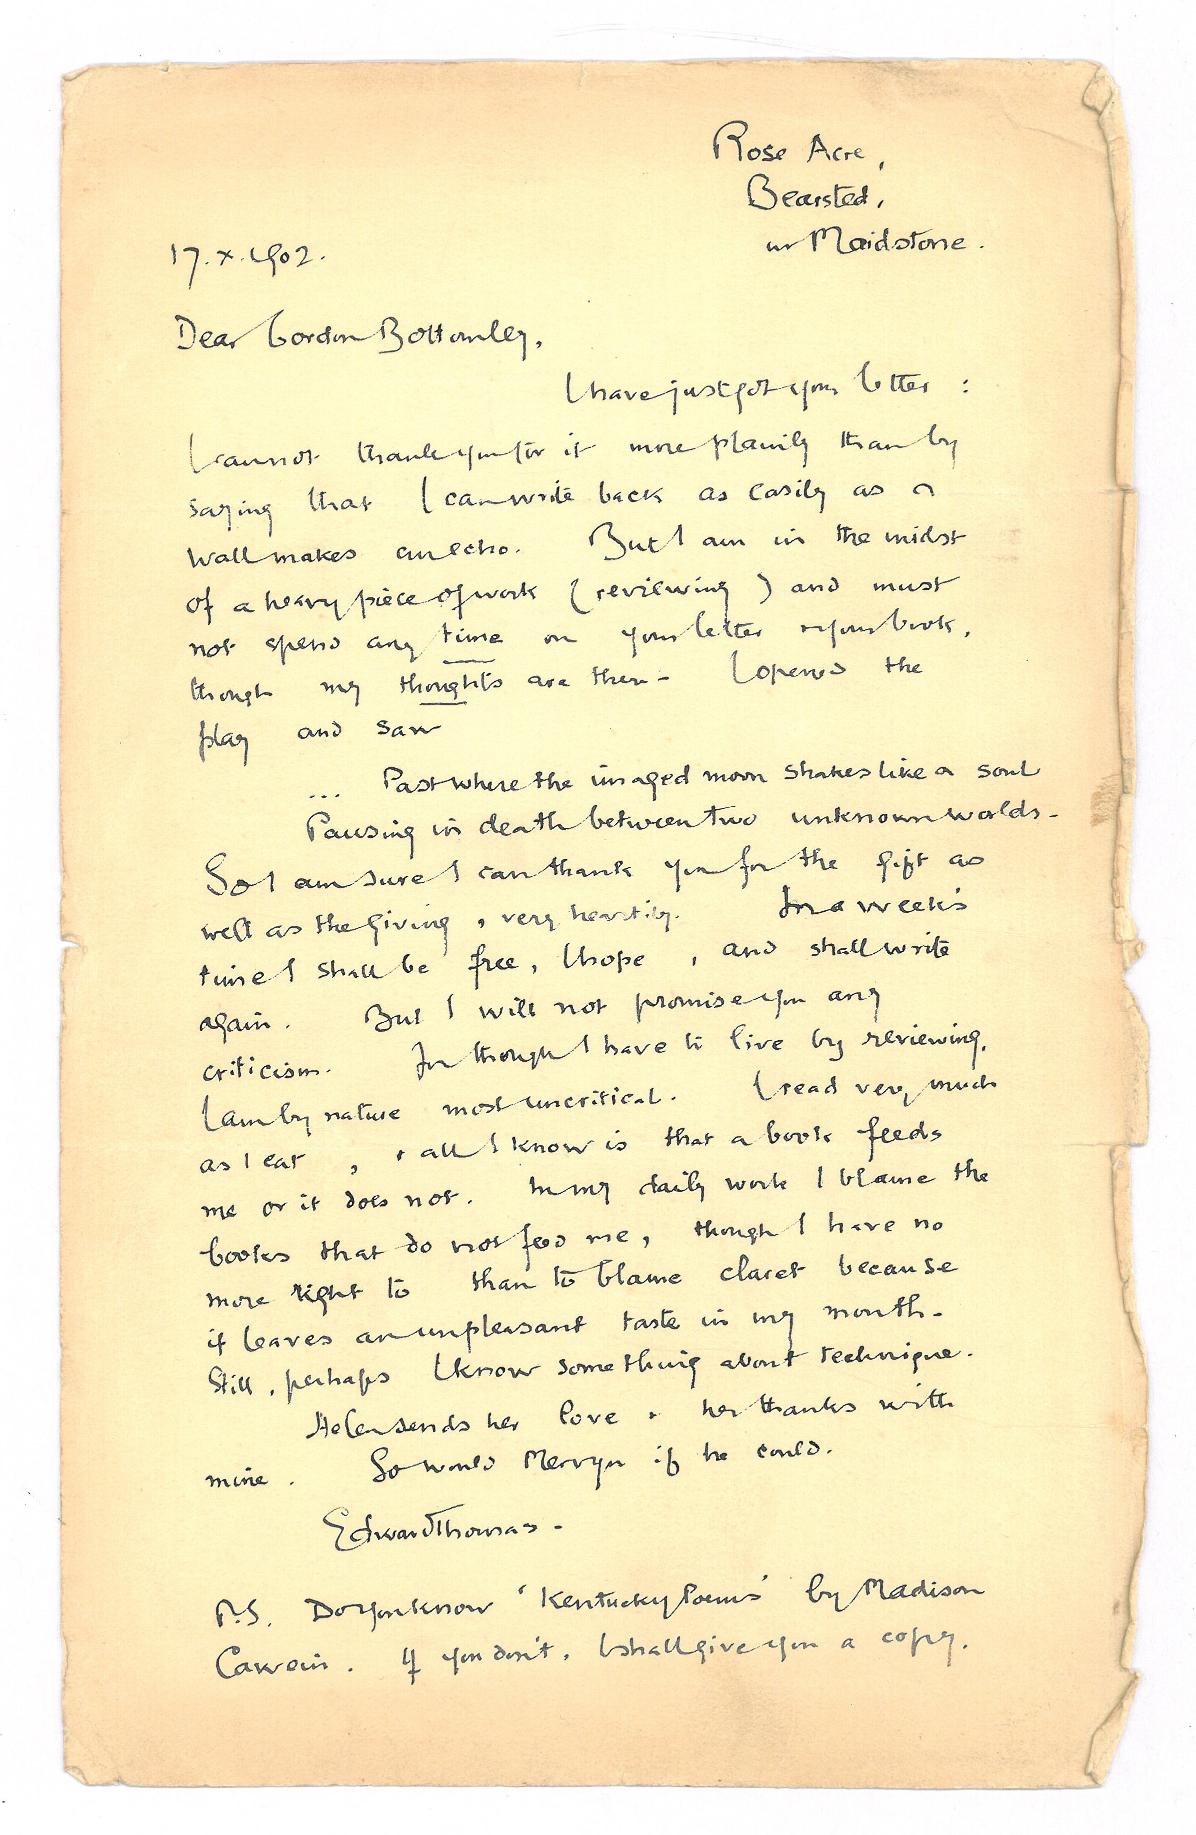 Rose Acre,
Bearsted,
nr Maidstone.
17.X.1902.
Dear Gordon Bottomley,
I have just got your letter :
I cannot thank you for it more plainly than by
saying that I can write back as easily as a
wall makes an echo. But I am in the midst
of a heavy piece of work (reviewing) and must
not spend any time on your letter & your book,
though my thoughts are there. I opened the
play and saw
... Past where the imaged moon shakes like a soul
Pausing in death between two unknown worlds.
So I am sure I can thank you for the gift as
well as the giving, very heartily. In a week's
time I shall be free, I hope, and shall write
again. But I will not promise you any
criticism. For though I have to live by reviewing,
I am by nature most uncritical. I read very much
as I eat, & all I know is that a book feeds
me or it does not. In my daily work I blame the
books that do not feed me, though I have no
more right to than to blame claret because
it leaves an unpleasant taste in my mouth.
Still, perhaps I know something about technique.
Helen sends her love & her thanks with
mine. So would Mervyn if he could.
Edward Thomas.
P.S. Do you know 'Kentucky Poems' by Madison
Cawein. If you don't, I shall give you a copy.